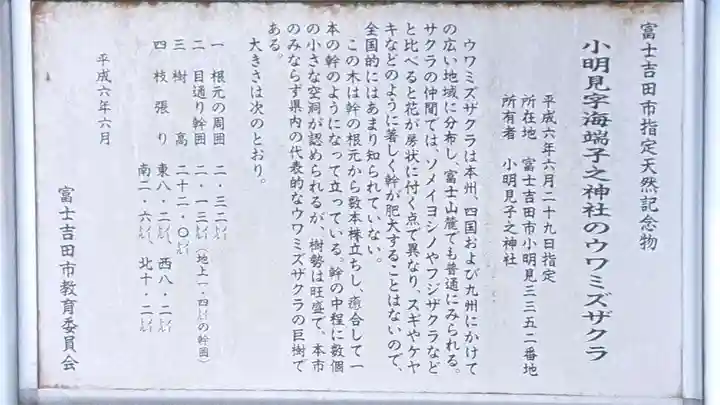 富士吉田市指定天然記念物
小明見字海端子之神社のウワミズザクラ
平成六年六月二十九日指定
所在地　富士吉田市小明見三三五二番地
所有者　小明見子之神社
ウワミズザクラは本州、四国および九州にかけて
の広い地域に分布し、富士山麓でも普通にみられる。
サクラの仲間では、ソメイヨシノやフジザクラなど
と比べると花が房状に付く点で異なり、スギやケヤ
キなどのように著しく幹が肥大することはないので、
全国的にはあまり知られていない。
この木は幹の根元から数本株立ちし、癒合して一
本の幹のようになって立っている。幹の中程に数個
の小さな空洞が認められるが、樹勢は旺盛で、本市
のみならず県内の代表的なウワミズザクラの巨樹で
ある。
大きさは次のとおり。
一　根元の周囲　二・三二メートル
二　目通り幹囲　二・一三メートル（地上一・四メートルの幹囲）
三　樹　高　二十二・〇メートル
四　枝張り　東八・二メートル、西八・二メートル
南二・六メートル、北十・二メートル
平成六年六月
富士吉田市教育委員会